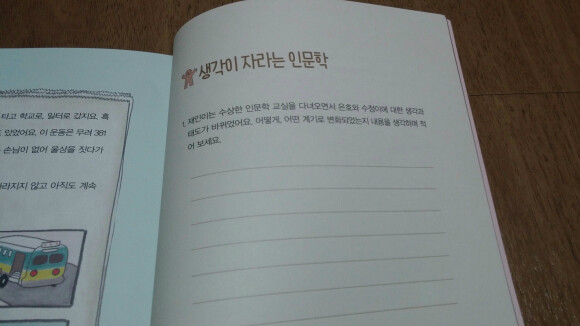 타고 학교로, 일터로 갔지요. 흑
있었어요. 이 운동은 무려 381
손님이 없어 울상을 짓다가
라지지 않고 아직도 계속
생각이 자라는 인문학
1. 재인이는 수상한 인문학 교실을 다녀오면서 은호와 수정이에 대한 생각과
태도가 바뀌었어요. 어떻게, 어떤 계기로 변화되었는지 내용을 생각하며 적
어 보세요.